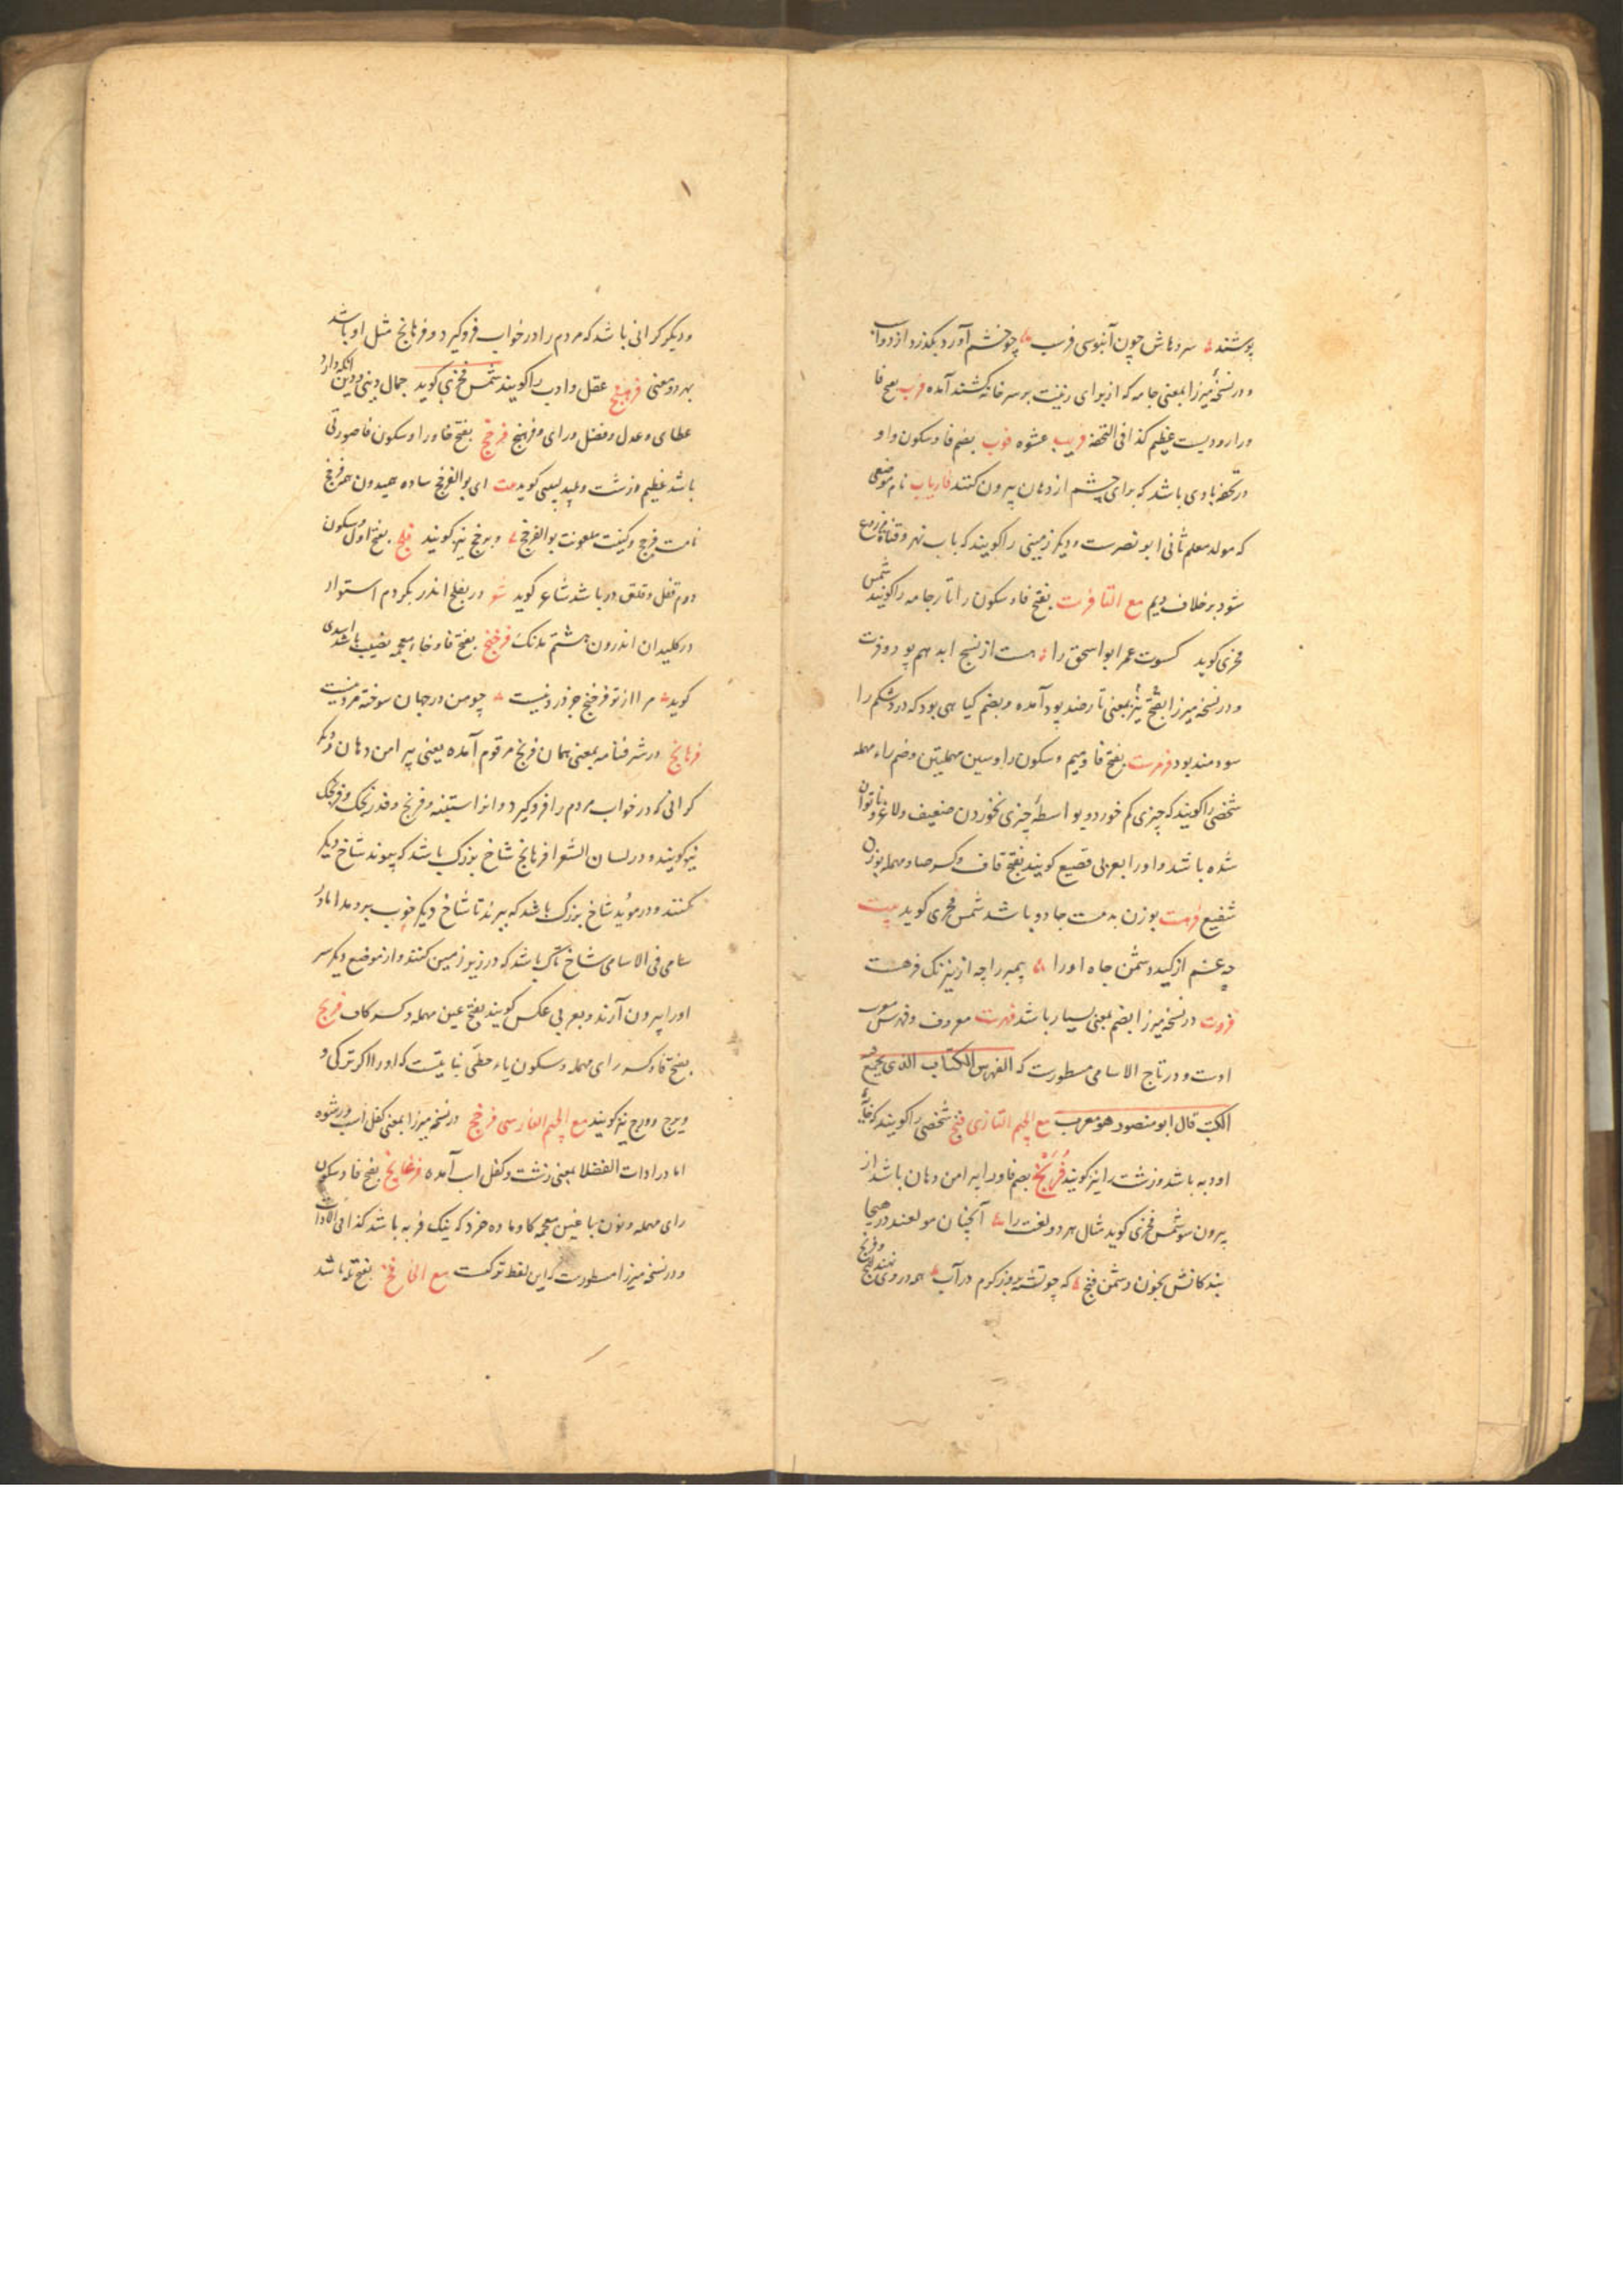 پوشند سر و هاش چون آبنوسی فرسب چو خشم آورد بگذرد از دواب
و در نسخهٔ میرزا بمعنی جامه که از برای زینت بر سر خانه کشند آمده فرب بفتح فا
و را رودیست عظیم کذا فی التحفه فریب عشوه فوب بضم فا و سکون واو
در تحفه بادی باشد که برای چشم از دهان بیرون کنند فاریاب نام موضعی
که مولد معلم ثانی ابو نصرست و دیگر زمینی را گویند که باب نهر و قنات مزروع
شود بر خلاف دیم مع التا فرت بفتح فا و سکون را تار جامه را گویند شمس
فخری گوید کسوت عمر ابو اسحق را هست از نسج ابد بهم پود و فرت
و در نسخه میرزا بفتح نیز بمعنی تار ضد پود آمده و بضم گیاهی بود که درد شکم را
سودمند بود فرمرست بفتح فا و میم و سکون را و سین مهملتین و ضم راء مهمله
شخصی را گویند که چیزی کم خورد و بواسطهٔ چیزی نخوردن ضعیف و لاغر و ناتوان
شده باشد و او را بعربی قصیع گویند بفتح قاف و کسر صاد مهمله بوزن
شفیع فرهت بوزن بدمست جادو باشد شمس فخری گوید بیت
چه غم از کید دشمن جاه او را پیمبر را چه از نیرنگ فرهست
فروت در نسخه میرزا بضم بمعنی بسیار باشد فهرست معروف و فهرس معرب
اوست و در تاج الاسامی مسطورست که الفهرس الکتاب الذی یجمع فیه
الکتب قال ابو منصور هو معرب مع الجیم التازی فنج شخصی را گویند که خایهٔ
او دبه باشد و زشت را نیز گویند فرنج بضم فا و را پیرامن دهان باشد از
بیرون سو شمس فخری گوید مثال هر دو لغت را آنچنان مولعند در هیجا
بندگانش بخون دشمن فنج که چو تشنه بروز گرم در آب همی در روی نهند فرنج
و دیگر گرانی باشد که مردم را در خواب فرو گیرد و فرهانج مثل او باشد
بهر دو معنی فرهنج عقل و ادب را گویند شمس فخری گوید جمال دینی و دین آنکه دارد
عطای و عدل و فضل و رای و فرهنج فرخج بفتح فا و را و سکون خا صورتی
باشد عظیم و زشت و پلید لبیبی گوید بیت ای بوالفرخج ساده همیدون همه فرخج
نامت فرج و کنیت ملعونت بوالفرخج و برخج نیز گویند فلج بفتح اول و سکون
دوم قفل و غلق در باشد شاعر گوید شو در بفلج اندر بکردم استوار
در کلیدان اندرون هشتم مدنگ فرخنج بفتح فا و خاء معجمه نصیب باشد اسدی
گوید مرا از تو فرخنج جز درد نیست چو من در جهان سوخته مرد نیست
فرهانج در شرفنامه بمعنی همان فرنج مرقوم آمده یعنی پیرامن دهان و دیگر
گرانی که در خواب مردم را فرو گیرد و انرا استینه و فرنج و فدرنجک و فرنجک
نیز گویند و در لسان الشعرا فرهانج شاخ بزرگ باشد که پیوند شاخ دیگر
کنند و در مؤید شاخ بزرگ باشد که ببرند تا شاخ دیگر خوب بر دمد اما در
سامی فی الاسامی شاخ تاک باشد که در زیر زمین کنند و از موضع دیگر سر
او را بیرون آرند و بعربی عکس گویند بفتح عین مهمله و کسر کاف فریج
بفتح فا و کسر رای مهمله و سکون یاء حطی نباتیست که او را اکر ترکی و
ویرج و ورج نیز گویند مع الجیم الفارسی فرخج در نسخه میرزا بمعنی کفل اسب و رشوه
اما در ادات الفضلا بمعنی زشت و کفل اسب آمده فرغانج بفتح فا و سکون
رای مهمله و نون با غین معجمه گاو ماده خرد که نیک فربه باشد کذا فی الادات
و در نسخه میرزا مسطورست که این لفظ ترکیست مع الخا فخ بفتح تله باشد